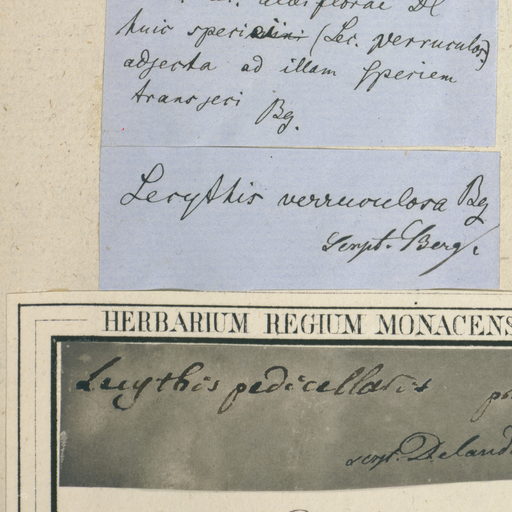 huic speci (Lec. verruculosa)
adjecta ad illam speciem
transjeci
Bg.
Lecythis verruculosa Bg
scrpt. Berg.
HERBARIUM REGIUM MONACENS
Lecythis pedicellaris
script. Deland